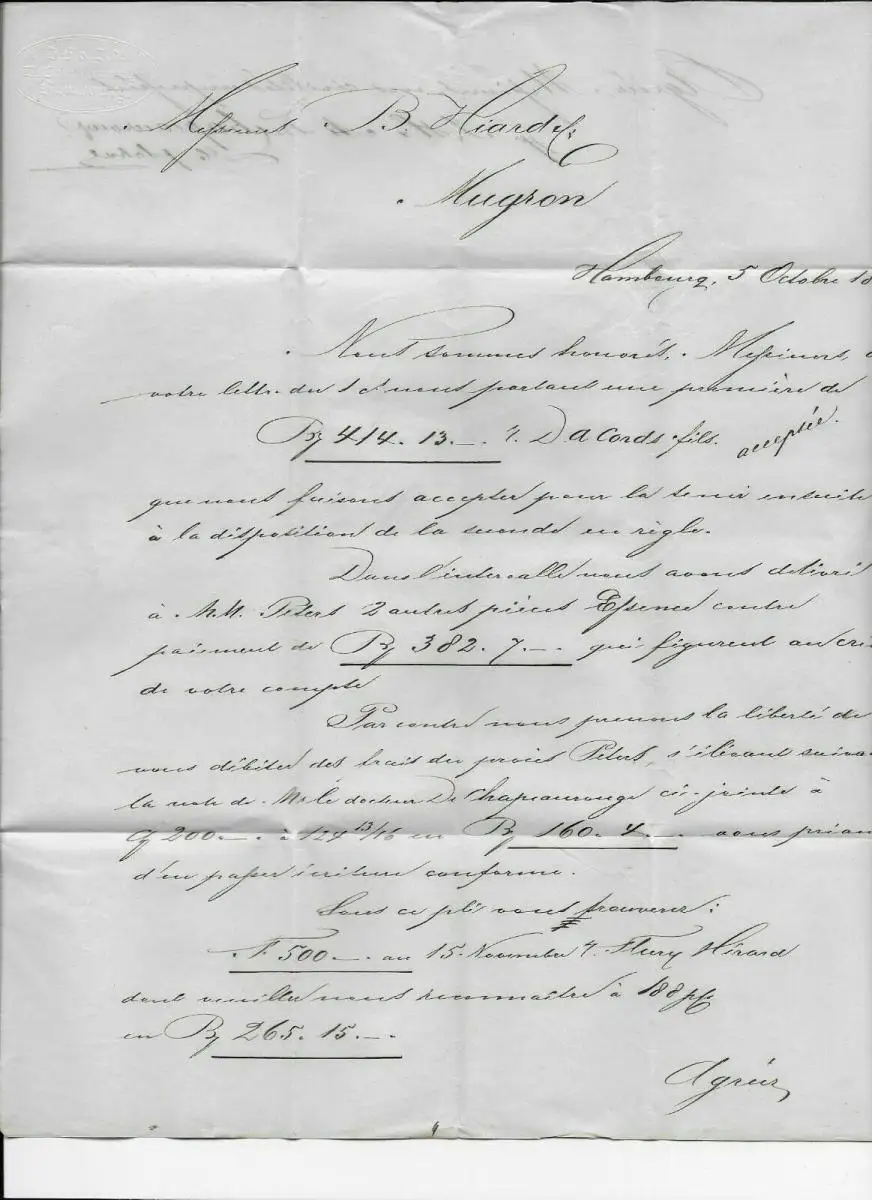 Messieurs B. Hiard & Cie
Mugron
Hambourg, 5 Octobre 18
Nous sommes honorés, Messieurs, d
votre lettre du 1 ct nous portant une première de
Bq 414. 13. — s/. D A Cords fils. acceptée.
que nous faisons accepter pour la tenir ensuite
à la disposition de la seconde en règle.
Dans l'intervalle nous avons délivré
à M.M. Peters 2 autres pièces Essence contre
paiement de Bq 382. 7. — qui figurent au cré
de votre compte
Par contre nous prenons la liberté de
vous débiter des frais du procès Peters, s'élevant suiva
la note de Mr le docteur De Chapeaurouge ci-jointe à
200. — à 124 13/16 en Bq 160. 4. — vous prian
d'en passer écriture conforme.
Sous ce pli vous trouverez:
F. 500. — au 15. November s/. Fleury Hérard
dont veuillez nous reconnaître à 188
en Bq 265. 15. —.
Agréez